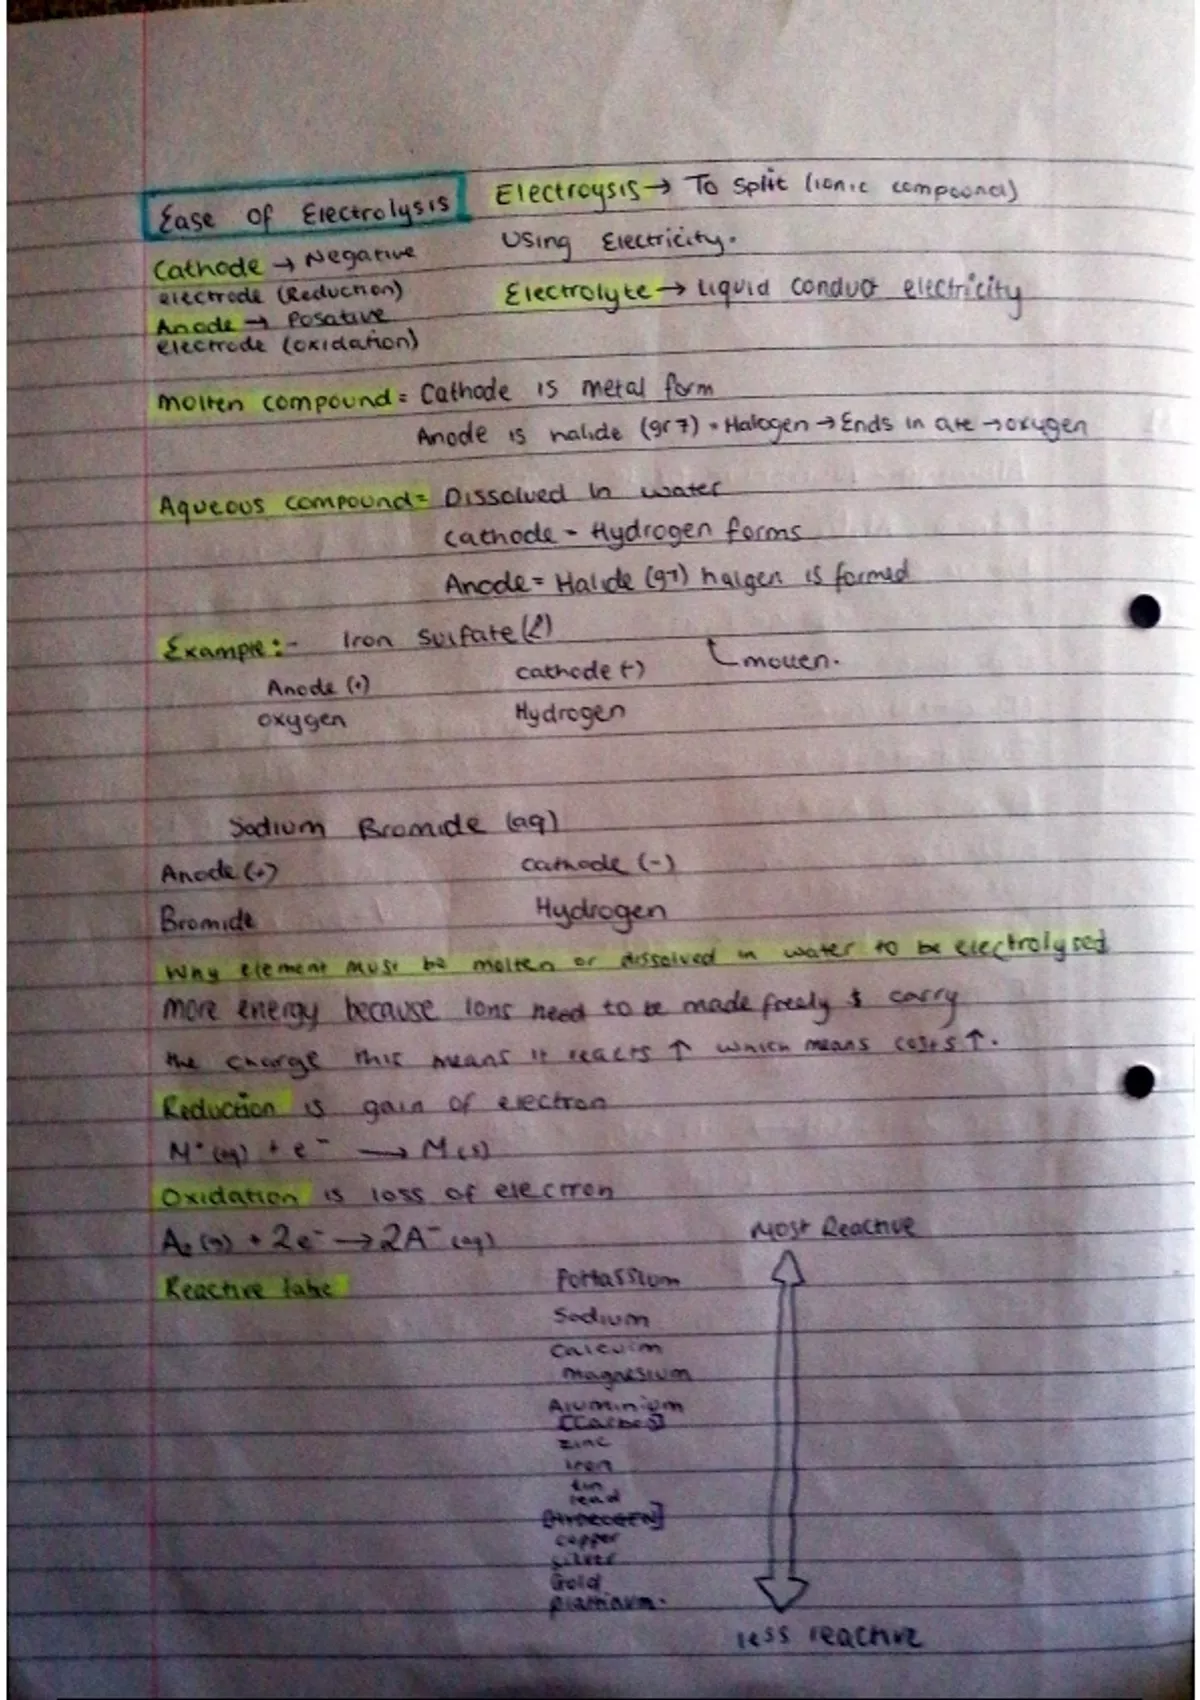 Ease of Electrolysis
Electroysis → To Split (ionic compound)
Using Electricity.
Cathode → Negative
electrode (Reduction)
Electrolyte → Liquid conduct electricity
Anode → Posative
electrode (oxidation)
Molten compound = Cathode is metal form
Anode is halide (gr 7) = Halogen → Ends in ate → oxygen
Aqueous compound = Dissolved in water
cathode - Hydrogen forms
Anode = Halide (g7) halgen is formed
Example :- Iron Sulfate (l)
Anode (+) cathode (-) molten.
oxygen Hydrogen
Sodium Bromide (aq)
Anode (+) cathode (-)
Bromide Hydrogen
Why element must be molten or dissolved in water to be electrolysed
more energy because ions need to be made freely & carry
the charge this means it reacts ↑ which means costs ↑.
Reduction is gain of electron
M⁺(aq) + e⁻ → M(s)
Oxidation is loss of electron
A₂(g) + 2e⁻ → 2A⁻(aq)
Most Reactive
Reactive
Pottassium
Sodium
Calcuim
magnesium
Aluminium
zinc
iron
tin
lead
[HYDROGEN]
copper
silver
Gold
less reactive